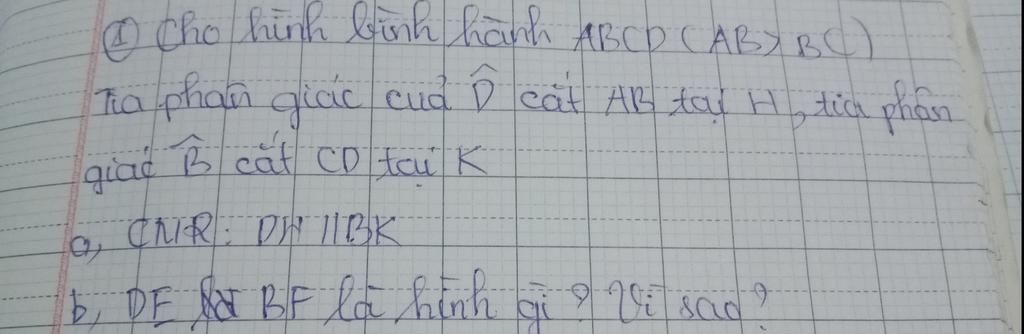 ① Cho hình bình hành ABCD (AB > BC)
Tia phân giác cuả D̂ cắt AB tại H, tia phân
giác B̂ cắt CD tại K
a, CMR: DH // BK
b, DE BF là hình gì? Vì sao?